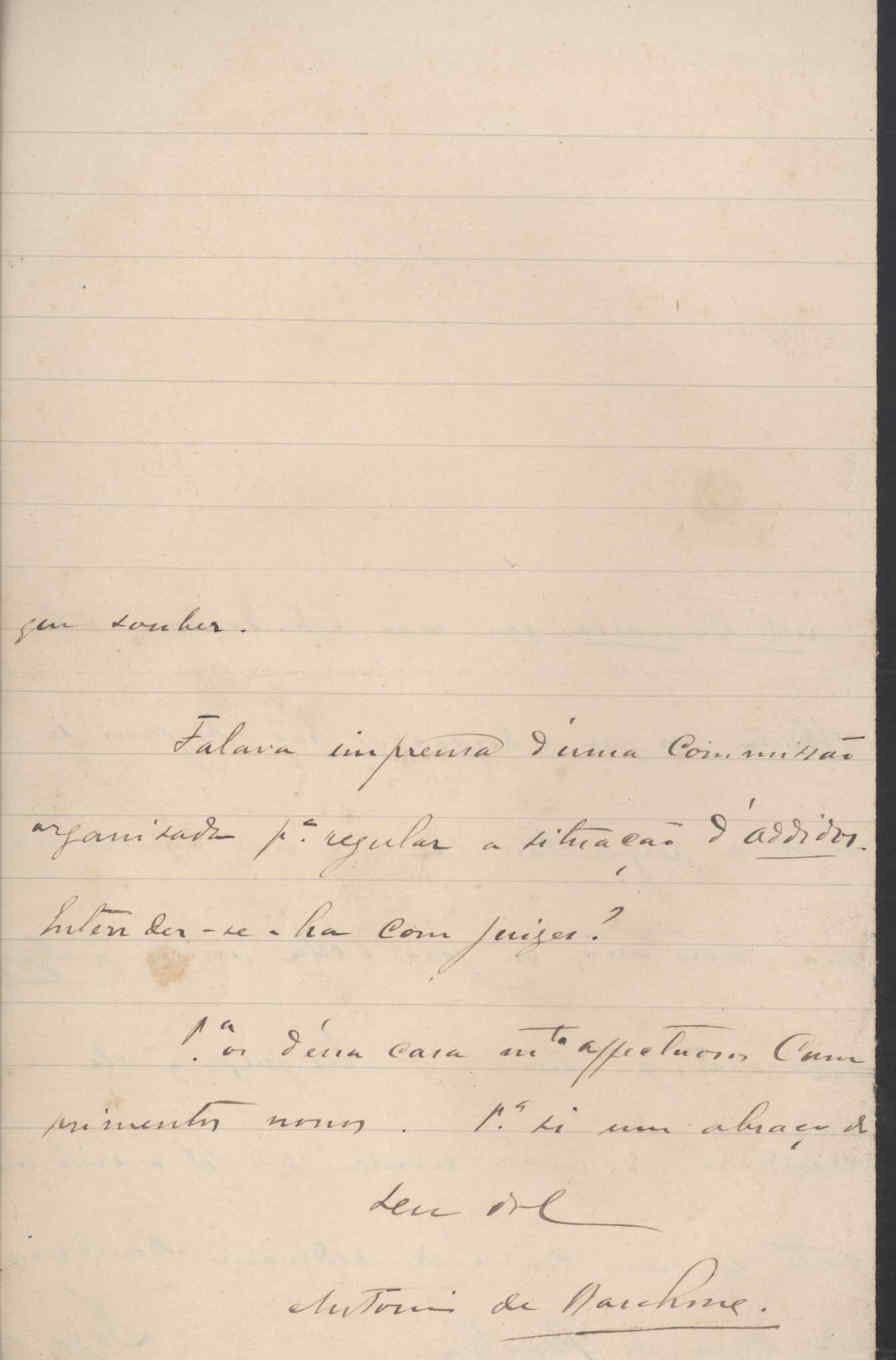 que souber.
Falava imprensa d'uma Commissão
organisada p.ª regular a situação d'addidos.
Entender-se-ha com juizes?
P.ª os d'essa casa m.to affectuosos Cum
primentos nossos. P.ª si um abraço do
seu
Antonio de